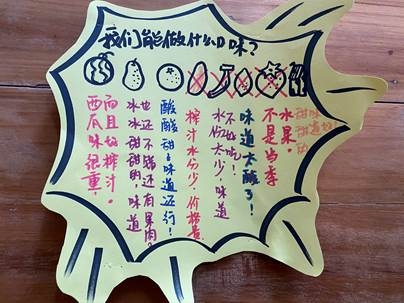 我们能做什么口味?
西瓜味很重,
而且好榨汁.
冰冰甜甜的,味道
也还不错还有果肉.
酸酸甜甜味道还行!
榨汁水份少,价格贵.
水份太少,味道
不好吃!
味道太酸了!
不是当季
水果.